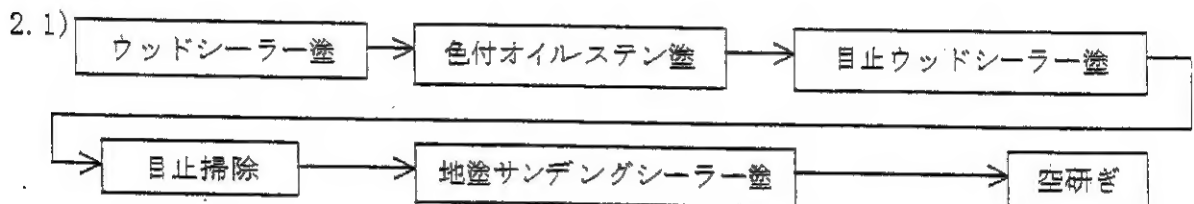 2.1) ウッドシーラー塗 色付オイルステン塗 目止ウッドシーラー塗
目止掃除 地塗サンデングシーラー塗 空研ぎ